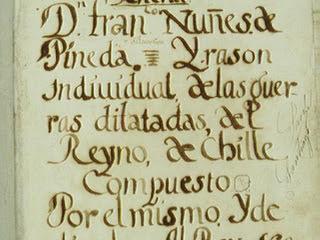 Dⁿ franᶜᵒ Nuñes. de
Pineda. Y rason
individual, de las guer
ras dilatadas, del
Reyno, de Chille
Compuesto
Por el mismo. Y de